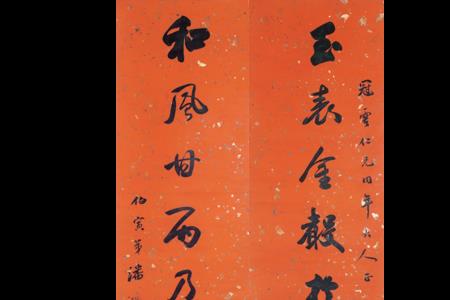 冠雲仁兄同年大人正
玉表金聲
和風甘雨乃
伯寅弟潘